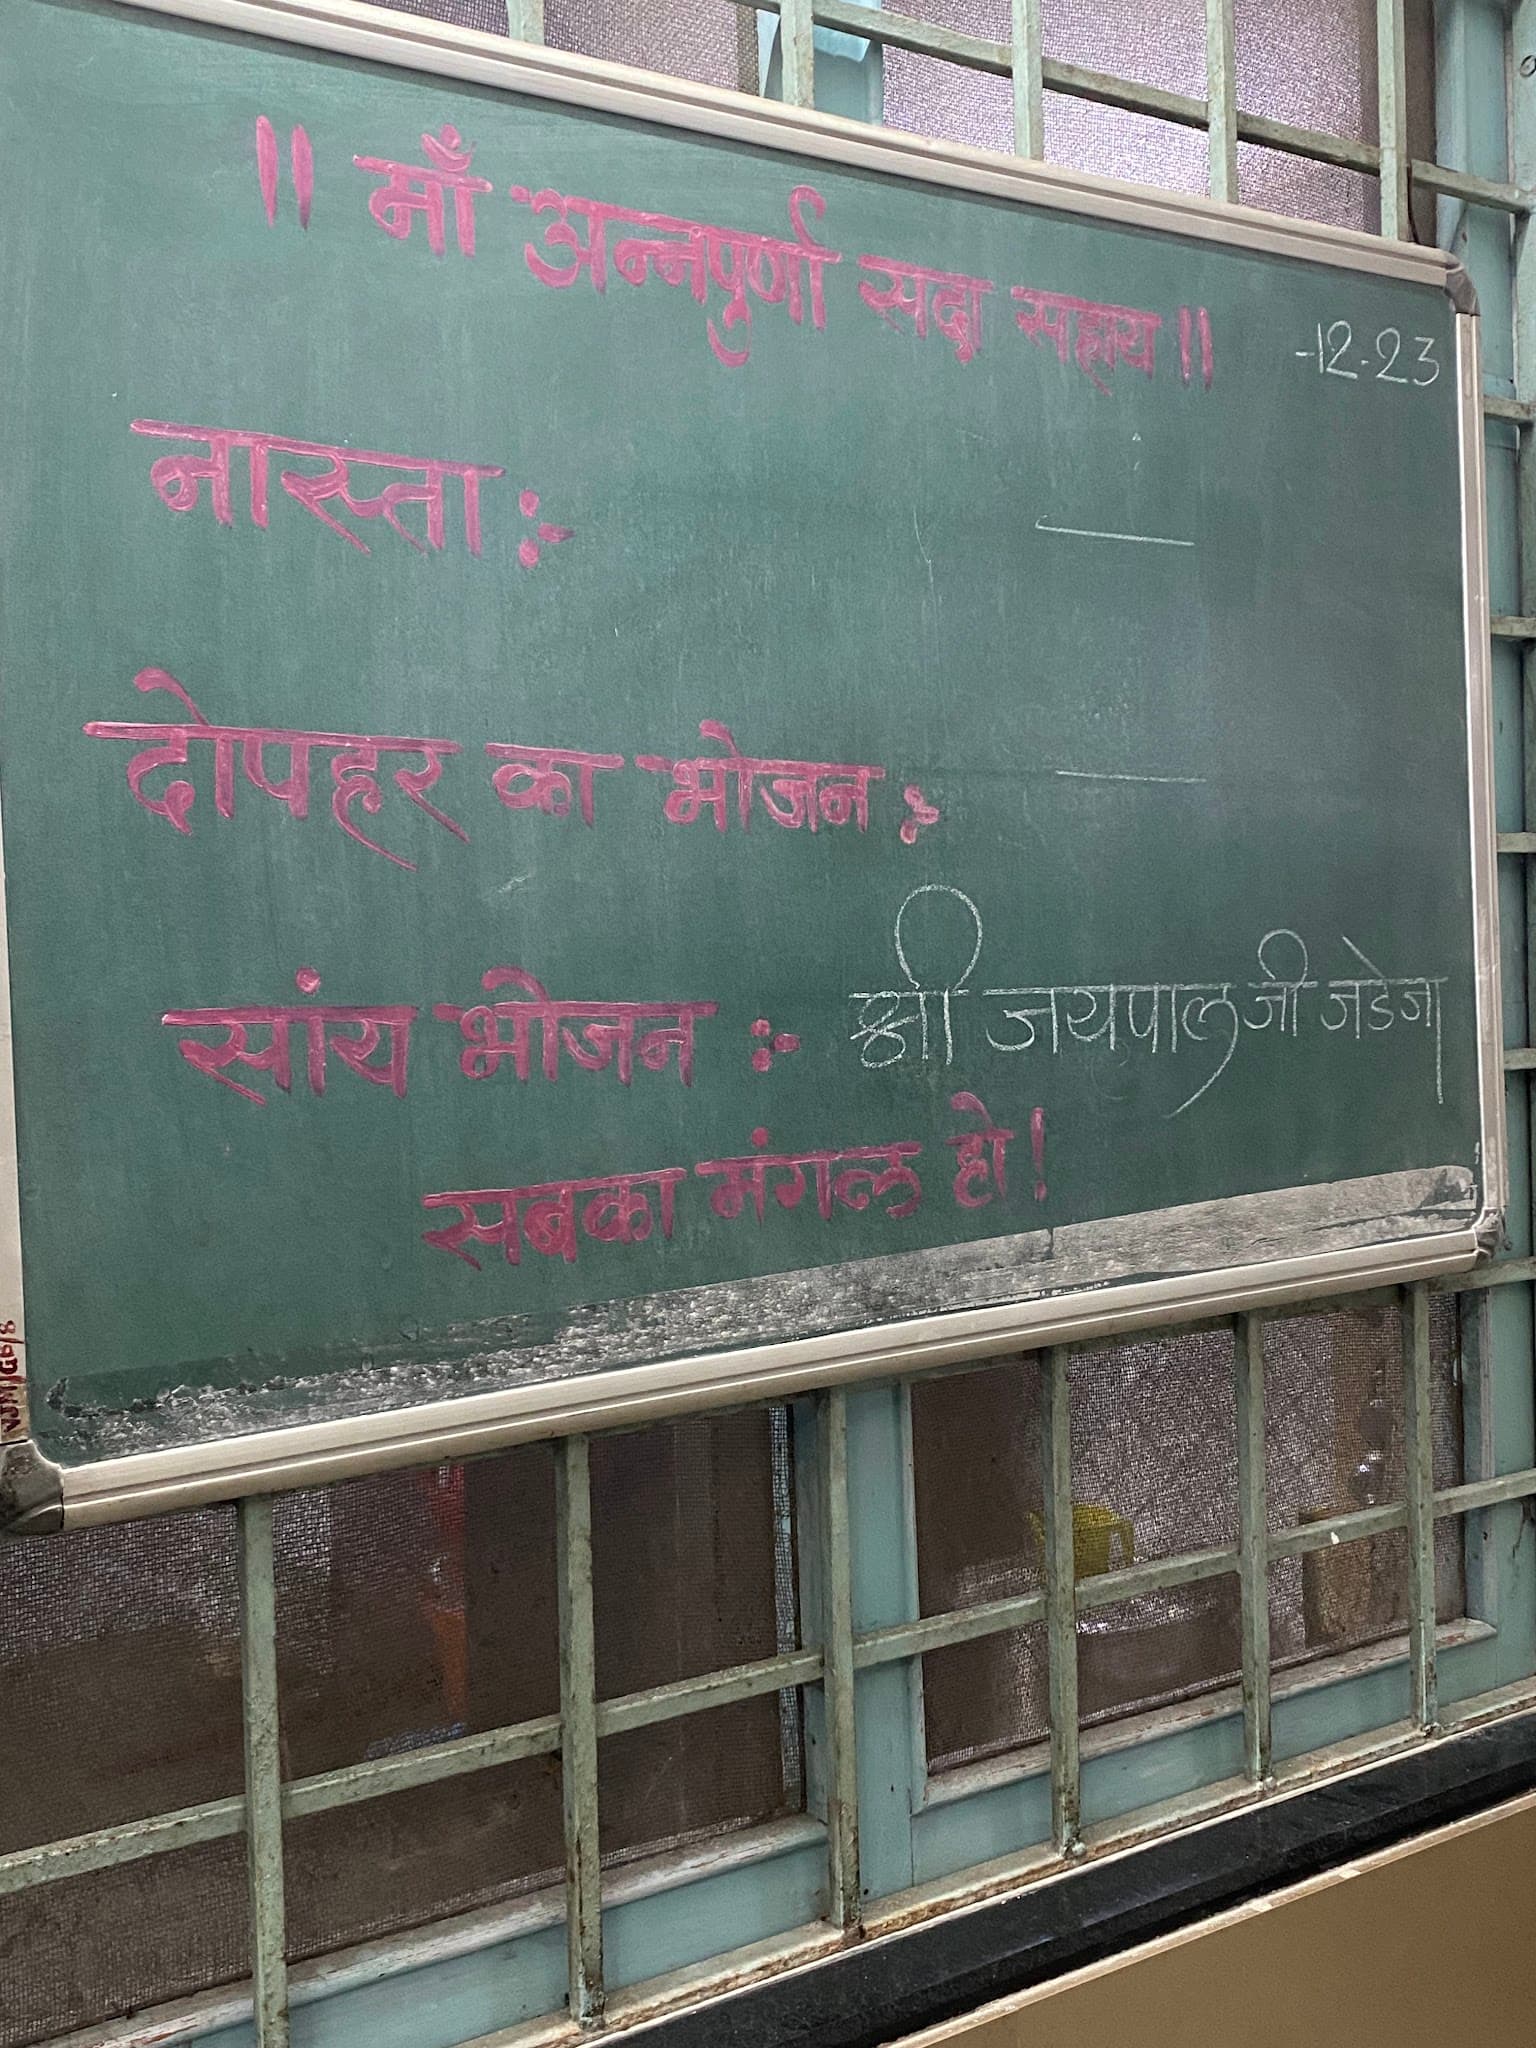 ॥ माँ अन्नपुर्णा सदा सहाय ॥
-12-23
नास्ता :-
दोपहर का भोजन :-
सांय भोजन :- श्री जयपाल जी जडेजा
सबका मंगल हो !